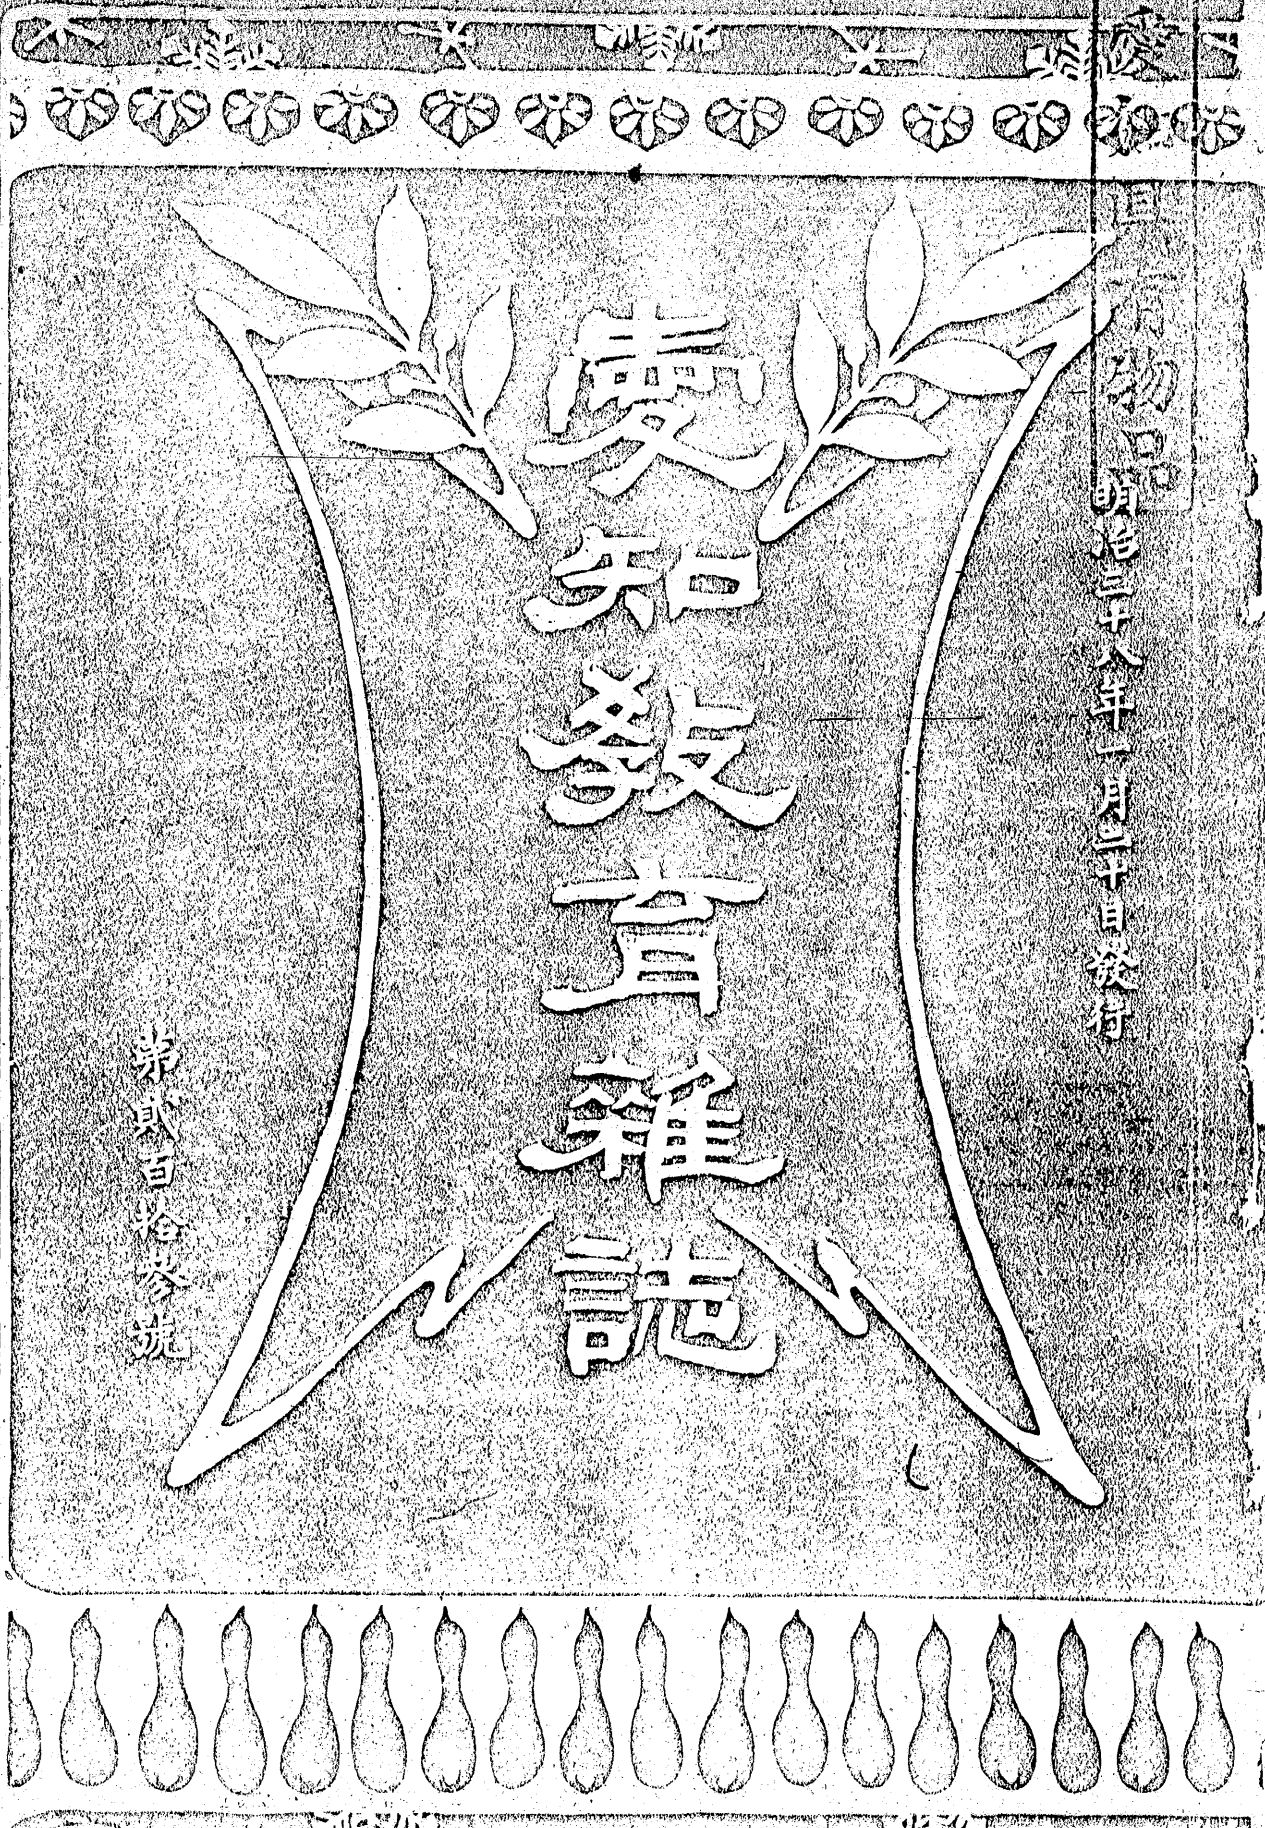 有物品
明治三十八年一月三十日發行
愛知敎育雜誌
第貳百拾參號